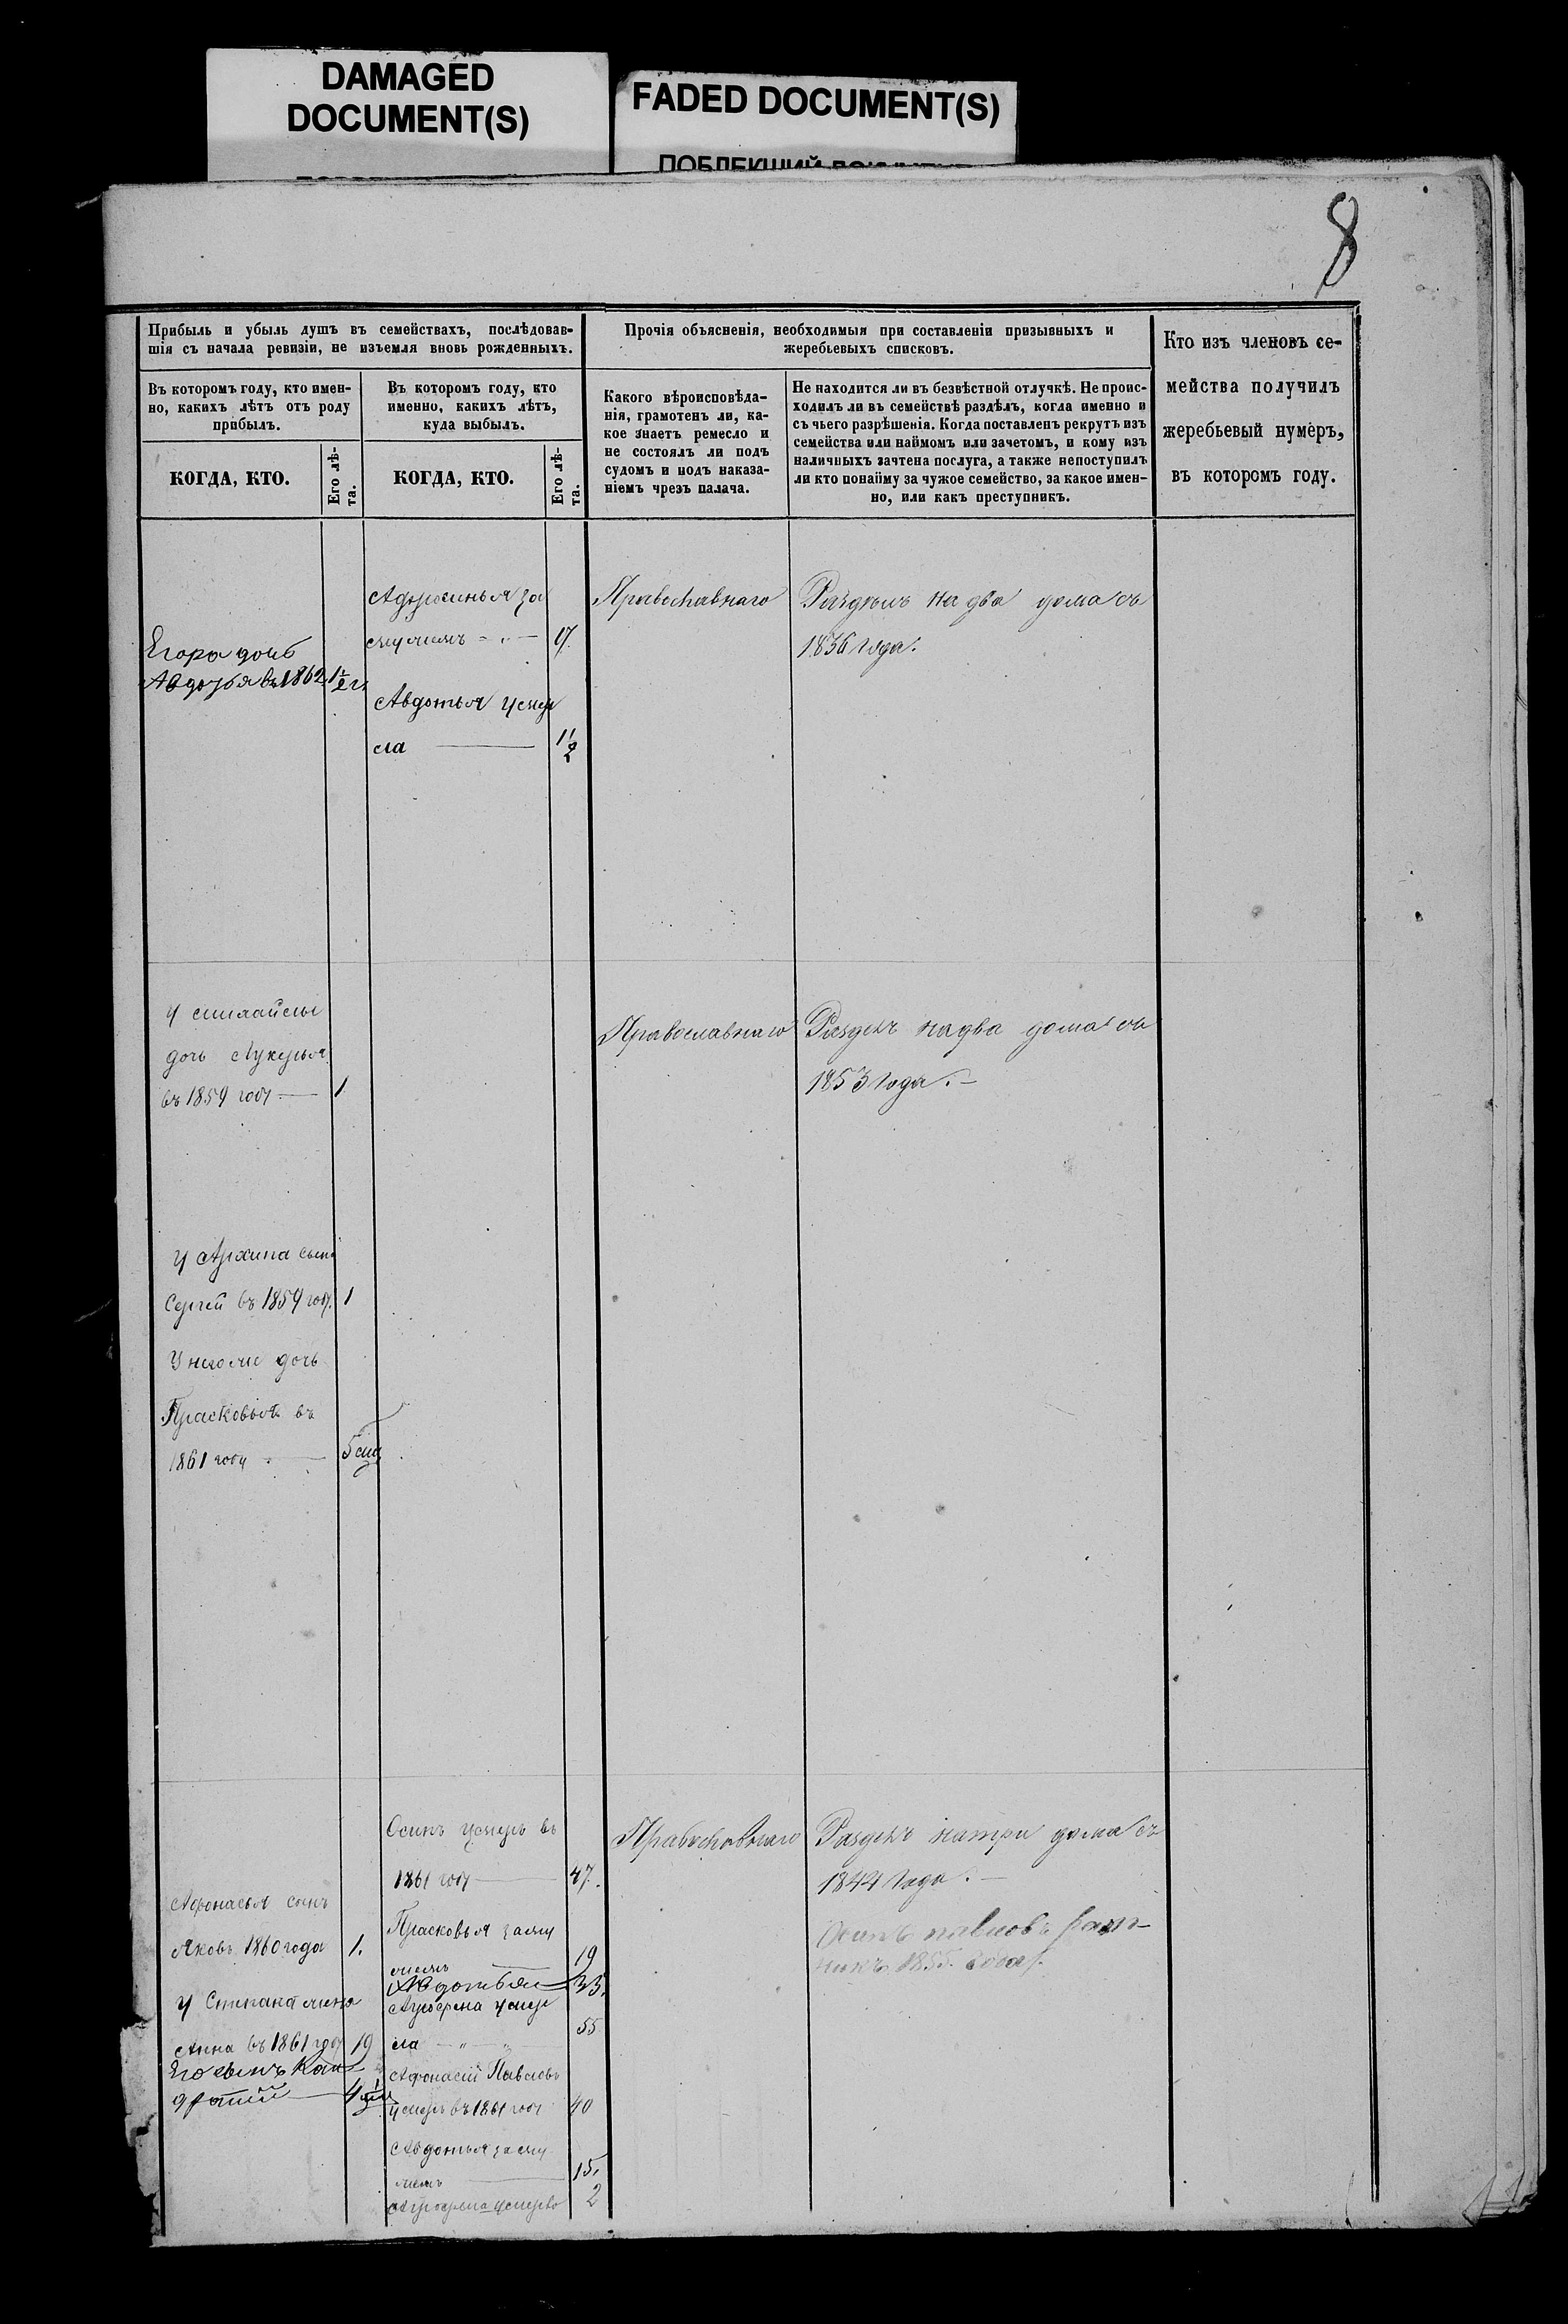 DAMAGED
DOCUMENT(S)
FADED DOCUMENT(S)
8
Прибыль и убыль душъ въ семействахъ, послѣдовав-
шія съ начала ревизіи, не изъемля вновь рожденныхъ.
Въ которомъ году, кто имен-
но, какихъ лѣтъ отъ роду
прибылъ.
КОГДА, КТО.
Его лѣ-
та.
Въ которомъ году, кто
именно, какихъ лѣтъ,
куда выбылъ.
КОГДА, КТО.
Его лѣ-
та.
Прочія объясненія, необходимыя при составленіи призывныхъ и
жеребьевыхъ списковъ.
Какого вѣроисповѣда-
нія, грамотенъ ли, ка-
кое знаетъ ремесло и
не состоялъ ли подъ
судомъ и подъ наказа-
ніемъ чрезъ палача.
Не находится ли въ безвѣстной отлучкѣ. Не проис-
ходилъ ли въ семействѣ раздѣлъ, когда именно и
съ чьего разрѣшенія. Когда поставленъ рекрутъ изъ
семейства или наймомъ или зачетомъ, и кому изъ
наличныхъ зачтена послуга, а также непоступилъ
ли кто понайму за чужое семейство, за какое имен-
но, или какъ преступникъ.
Кто изъ членовъ се-
мейства получилъ
жеребьевый нумеръ,
въ которомъ году.
Егора дочь
Авдотья въ 1862 1/2 г.
за
мужемъ 17.
Авдотья умер
ла 1 1/2
Православнаго
Раздѣлъ на два дома съ
1856 года.
у
дочь Лукерья
въ 1859 году 1
Православнаго
Раздѣлъ на два дома съ
1853 года.
у Архипа сынъ
Сергей въ 1859 году. 1
У него же дочь
Прасковья въ
1861 году 5 мц
Афонасья сынъ
Яковъ 1860 года 1.
у Степана жена
Анна въ 1861 году 19
Его сынъ Кон
дратий
Осипъ умеръ въ
1861 году 47.
Прасковья заму
жемъ 19
Авдотья 33.
умер
ла 55
Афонасій Павловъ
умеръ въ 1861 году 40
Авдотья заму
жемъ 15.
2
Православнаго
Раздѣлъ натри дома съ
1844 года.
Осипъ Павловъ
1855 года.